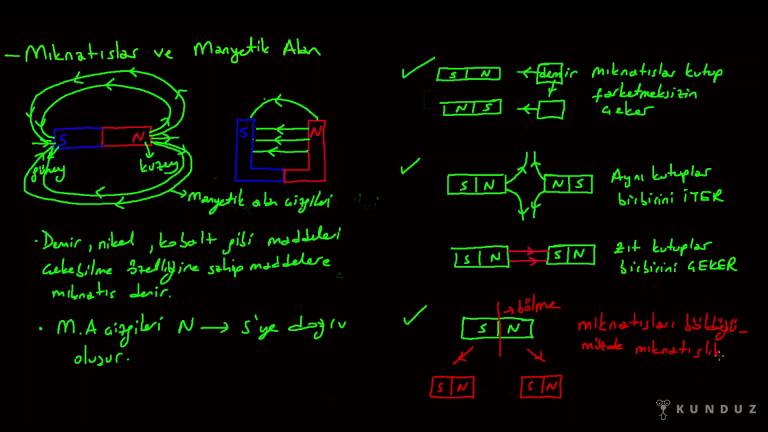 – Mıknatıslar ve Manyetik Alan
S N
güney kuzey
Manyetik alan çizgileri
S N
· Demir, nikel, kobalt gibi maddeleri
çekebilme özelliğine sahip maddelere
mıknatıs denir.
· M.A çizgileri N → S'ye doğru
oluşur.
S N ← demir
N S ←
mıknatıslar kutup
farketmeksizin
çeker
S N N S
Aynı kutuplar
birbirini İTER
S N S N
zıt kutuplar
birbirini ÇEKER
→ bölme
S N
S N S N
mıknatısları böldüğü-
müzde mıknatıslık
KUNDUZ